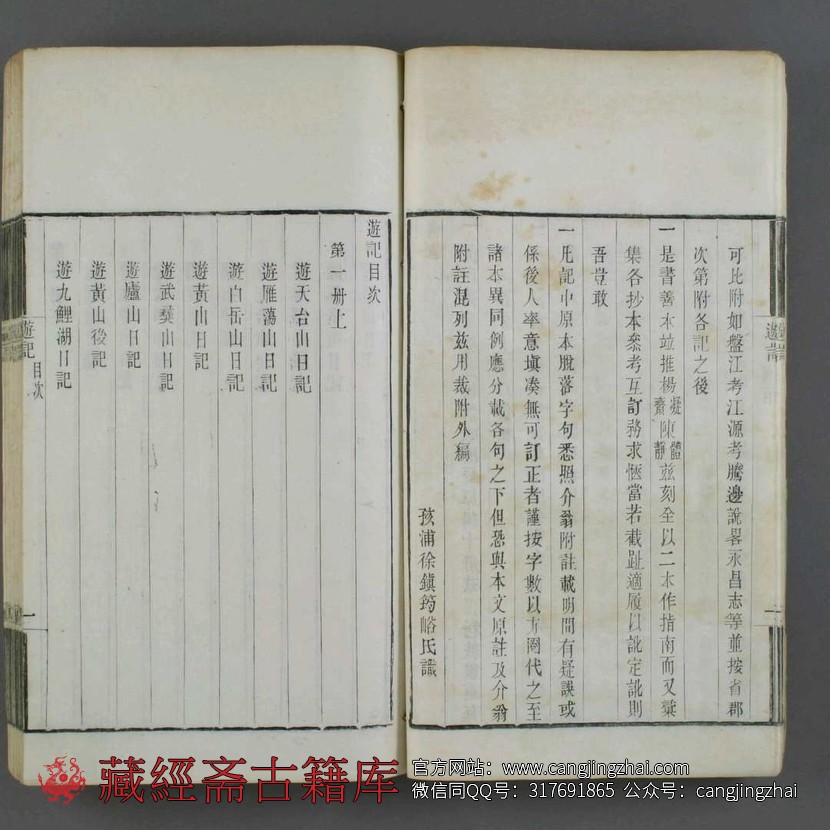 可比附如盤江考江源考騰邊說畧永昌志等並按省郡
次第附各記之後
一是書善本竝推楊凝齋陳體靜茲刻全以二本作指南而又彚
集各抄本叅考互訂務求愜當若截趾適履以訛定訛則
吾豈敢
一凡記中原本脫落字句悉照介翁附註載明間有疑誤或
係後人率意塡凑無可訂正者謹按字數以方圈代之至
諸本異同例應分載各句之下但恐與本文原註及介翁
附註混列茲用裁附外編
孩浦徐鎭筠峪氏識
遊記
遊記目次
第一册上
遊天台山日記
遊雁蕩山日記
遊白岳山日記
遊黃山日記
遊武彝山日記
遊廬山日記
遊黃山後記
遊九鯉湖日記
遊記
目次
一
藏經斋古籍库
官方网站：www.cangjingzhai.com
微信同QQ号：317691865 公众号：cangjingzhai